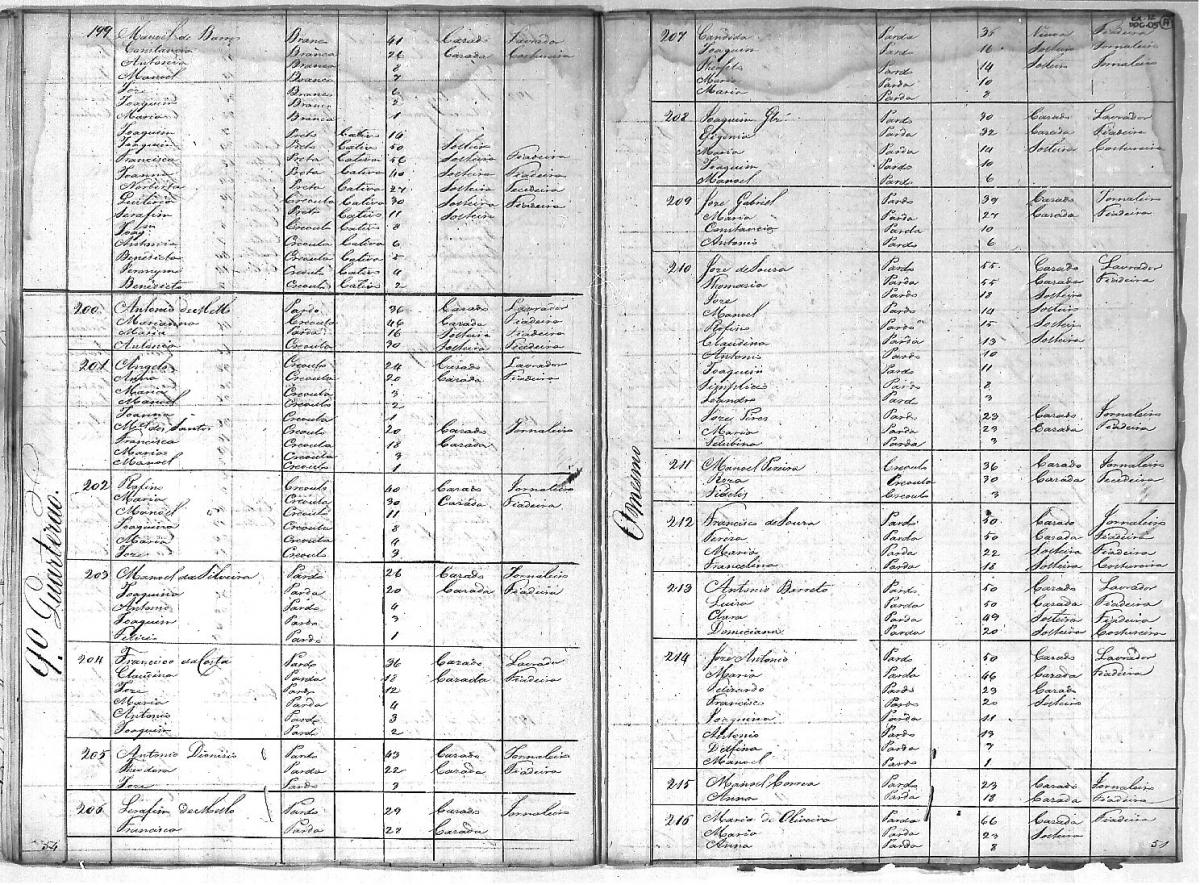 9.o Quarteirão.
199 Manoel de Barros Branco 41 Casado Lavrador
Constancia Branca 26 Casada Costureira
Antonia Branca 8
Manoel Branco 7
Joze Branco 6
Joaquim Branco 2
Maria Branca 1
Joaquim Preto Cativo 14
Joaquim Preto Cativo 50 Solteiro
Francisca Preta Cativa 56 Solteira Fiadeira
Joanna Preta Cativa 40 Solteira Fiadeira
Norberta Preta Cativa 27 Solteira Tecedeira
Creoula Cativa 30 Solteira Fiadeira
Serafim Preto Cativo 11 Solteiro
Joaqm Creoulo Cativo 8
Antonia Creoula Cativa 6
Benedicta Creoula Cativa 5
Creoulo Cativo 4
Benedicto Creoulo Cativo 2
200 Antonio de Mello Pardo 36 Casado Lavrador
Marianna Creoula 46 Casada Fiadeira
Maria Parda 16 Solteira Fiadeira
Antonia Creoula 30 Solteira Fiadeira
201 Angelo Creoulo 24 Casado Lavrador
Anna Creoula 20 Casada Fiadeira
Maria Creoula 3
Manoel Creoulo 2
Joanna Creoula 1
Mel dos Santos Creoulo 20 Casado Jornaleiro
Francisca Creoula 18 Casada
Maria Creoula 3
Manoel Creoulo 1
202 Rofino Creoulo 40 Casado Jornaleiro
Maria Creoula 30 Casada Fiadeira
Manoel Creoulo 11
Joaquina Creoula 8
Maria Creoula 4
Joze Creoulo 3
203 Manoel da Silveira Pardo 26 Casado Jornaleiro
Joaquina Parda 20 Casada Fiadeira
Antonio Pardo 4
Joaquim Pardo 3
Pardo 1
204 Francisco da Costa Pardo 36 Casado Lavrador
Claudina Parda 18 Casada Fiadeira
Joze Pardo 12
Maria Parda 4
Antonio Pardo 3
Joaquim Pardo 2
205 Antonio Dionisio Pardo 43 Casado Jornaleiro
Theodora Parda 22 Casada Fiadeira
Joze Pardo 3
206 Serafim de Mello Pardo 29 Casado Jornaleiro
Francisca Parda 22 Casada
O mesmo
207 Candida Parda 36 Viuva Fiadeira
Joaquim Pardo 16 Solteiro Jornaleiro
Pardo 14 Solteiro Jornaleiro
Maria Parda 10
Maria Parda 8
208 Joaquim Pardo 30 Casado Lavrador
Efigenia Parda 32 Casada Fiadeira
Maria Parda 14 Solteira Costureira
Joaquim Pardo 10
Manoel Pardo 6
209 Joze Gabriel Pardo 39 Casado Jornaleiro
Maria Parda 27 Casada Fiadeira
Constancia Parda 10
Antonio Pardo 6
210 Joze de Souza Pardo 55 Casado Lavrador
Thomasia Parda 55 Casada Fiadeira
Joze Pardo 18 Solteiro
Manoel Pardo 14 Solteiro
Rofino Pardo 15 Solteiro
Claudina Parda 13 Solteira
Antonio Pardo 10
Joaquim Pardo 11
Simplicio Pardo 8
Leandro Pardo 3
Joze Pires Pardo 23 Casado Jornaleiro
Maria Parda 23 Casada Fiadeira
Parda 3
211 Manoel Pereira Creoulo 36 Casado Jornaleiro
Roza Creoula 30 Casada Tecedeira
Fidelis Creoulo 3
212 Francisco de Souza Pardo 50 Casado Jornaleiro
Tereza Parda 50 Casada Fiadeira
Maria Parda 22 Solteira Fiadeira
Francelina Parda 18 Solteira Costureira
213 Antonio Barreto Pardo 50 Casado Lavrador
Luiza Parda 50 Casada Fiadeira
Clara Parda 49 Solteira Fiadeira
Domiciana Parda 20 Solteira Costureira
214 Joze Antonio Pardo 50 Casado Lavrador
Maria Parda 46 Casada Fiadeira
Felizardo Pardo 23 Casado
Francisco Pardo 20 Solteiro
Joaquina Parda 11
Antonio Pardo 13
Delfina Parda 7
Manoel Pardo 1
215 Manoel Correa Pardo 23 Casado Jornaleiro
Anna Parda 18 Casada Fiadeira
216 Maria de Oliveira Parda 66 Casada Fiadeira
Maria Parda 23 Solteira
Anna Parda 8
51